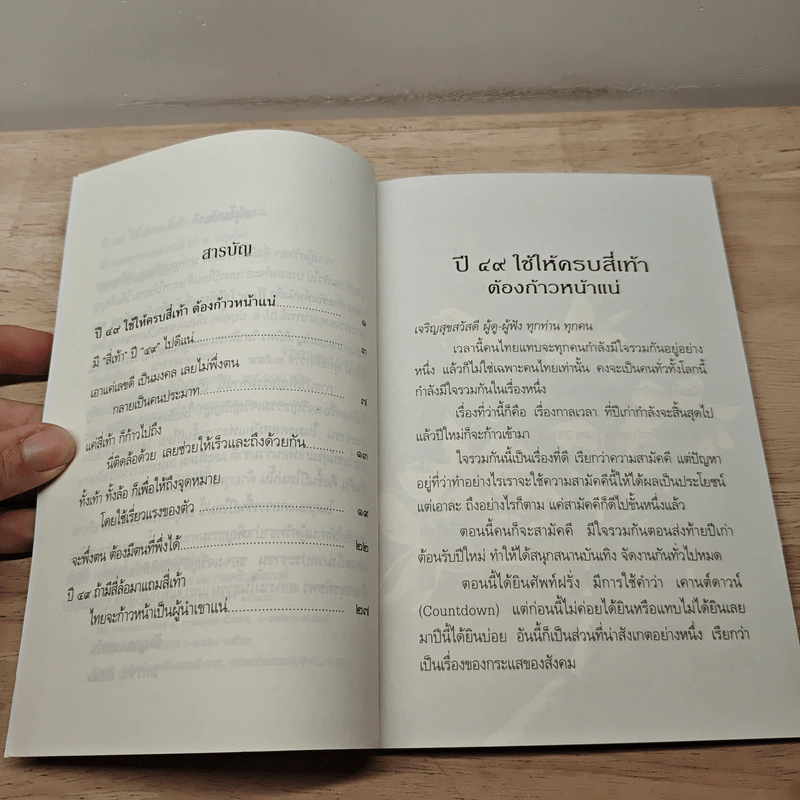 สารบัญ
ปี ๔๙ ใช้ให้ครบสี่เท้า ต้องก้าวหน้าแน่ ๑
มี "สี่เท้า" ปี "๔๙" ไปดีแน่ ๓
เอาแค่เลขดี เป็นมงคล เลยไม่พึ่งตน
กลายเป็นคนประมาท ๗
แค่สี่เท้า ก็ก้าวไปถึง
นี่ติดล้อด้วย เลยช่วยให้เร็วและถึงด้วยกัน ๑๓
ทั้งเท้า ทั้งล้อ ก็เพื่อให้ถึงจุดหมาย
โดยใช้เรี่ยวแรงของตัว
จะพึ่งตน ต้องมีตนที่พึ่งได้ ๒๒
ปี ๔๙ ถ้ามีสี่ล้อมาแถมสี่เท้า
ไทยจะก้าวหน้าเป็นผู้นำเขาแน่ ๒๗
ปี ๔๙ ใช้ให้ครบสี่เท้า
ต้องก้าวหน้าแน่
เจริญสุขสวัสดี ผู้ดู-ผู้ฟัง ทุกท่าน ทุกคน
เวลานี้คนไทยแทบจะทุกคนกำลังมีใจรวมกันอยู่อย่าง
หนึ่ง แล้วก็ไม่ใช่เฉพาะคนไทยเท่านั้น คงจะเป็นคนทั่วทั้งโลกนี้
กำลังมีใจรวมกันในเรื่องหนึ่ง
เรื่องที่ว่านี้ก็คือ เรื่องกาลเวลา ที่ปีเก่ากำลังจะสิ้นสุดไป
แล้วปีใหม่ก็จะก้าวเข้ามา
ใจรวมกันนี้เป็นเรื่องที่ดี เรียกว่าความสามัคคี แต่ปัญหา
อยู่ที่ว่าทำอย่างไรเราจะใช้ความสามัคคีนี้ให้ได้ผลเป็นประโยชน์
แต่เอาละ ถึงอย่างไรก็ตาม แค่สามัคคีก็ดีไปขั้นหนึ่งแล้ว
ตอนนี้คนก็จะสามัคคี มีใจรวมกันตอนส่งท้ายปีเก่า
ต้อนรับปีใหม่ ทำให้ได้สนุกสนานบันเทิง จัดงานกันทั่วไปหมด
ตอนนี้ได้ยินศัพท์ฝรั่ง มีการใช้คำว่า เคานต์ดาวน์
(Countdown) แต่ก่อนนี้ไม่ค่อยได้ยินหรือแทบไม่ได้ยินเลย
มาปีนี้ได้ยินบ่อย อันนี้ก็เป็นส่วนที่น่าสังเกตอย่างหนึ่ง เรียกว่า
เป็นเรื่องของกระแสของสังคม